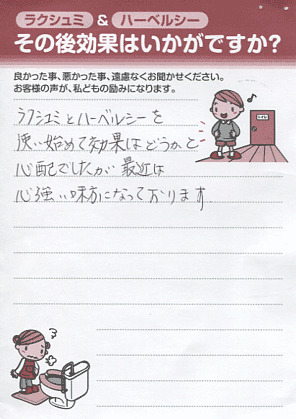 ラクシュミ & ハーベルシー
その後効果はいかがですか?
良かった事、悪かった事、遠慮なくお聞かせください。
お客様の声が、私どもの励みになります。
ラクシュミとハーベルシーを
使い始めて効果はどうかと
心配でしたが最近は
心強い味方になっております